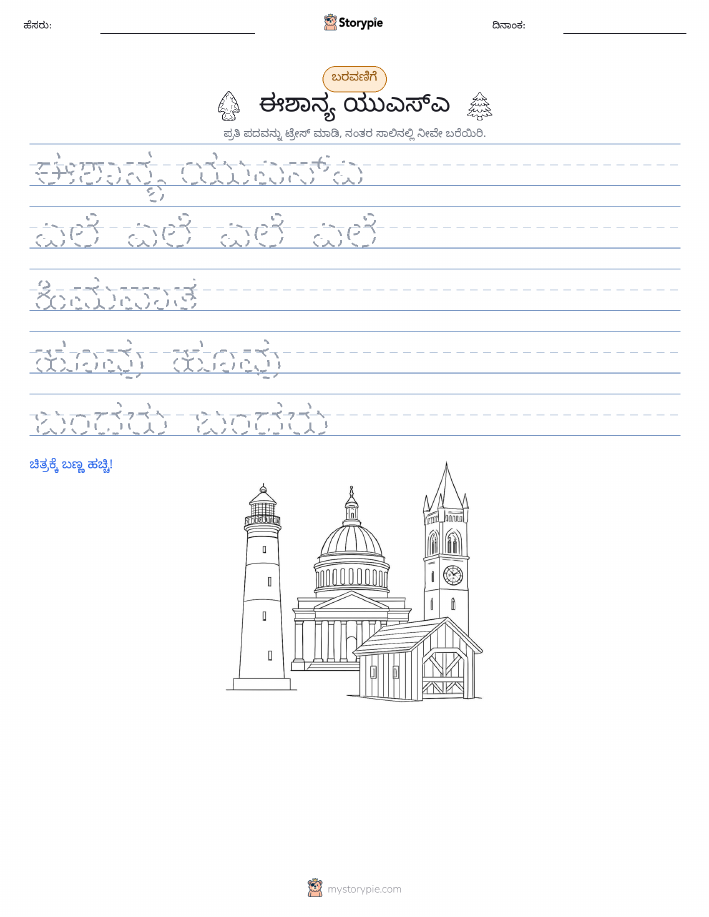 ಹೆಸರು:
Storypie
ದಿನಾಂಕ:
ಬರವಣಿಗೆ
ಈಶಾನ್ಯ ಯುಎಸ್ಎ
ಪ್ರತಿ ಪದವನ್ನು ಟ್ರೇಸ್ ಮಾಡಿ, ನಂತರ ಸಾಲಿನಲ್ಲಿ ನೀವೇ ಬರೆಯಿರಿ.
ಈಶಾನ್ಯ ಯುಎಸ್ಎ
ಎಲೆ ಎಲೆ ಎಲೆ ಎಲೆ
ಹಿಮಪಾತ
ಹೂವು ಹೂವು
ಬಂದರು ಬಂದರು
ಚಿತ್ರಕ್ಕೆ ಬಣ್ಣ ಹಚ್ಚಿ!
mystorypie.com